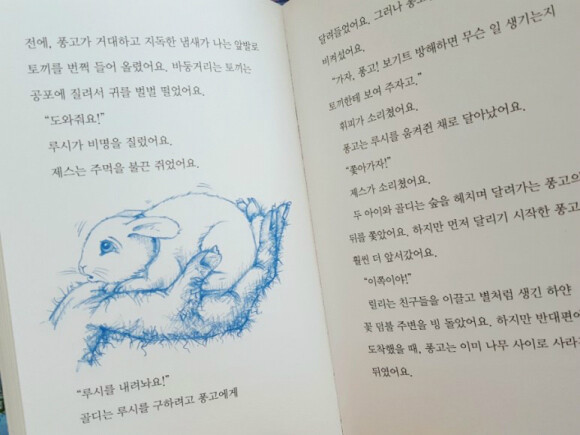 전에, 퐁고가 거대하고 지독한 냄새가 나는 앞발로
토끼를 번쩍 들어 올렸어요. 바둥거리는 토끼는
공포에 질려서 귀를 벌벌 떨었어요.
“도와줘요!”
루시가 비명을 질렀어요.
제스는 주먹을 불끈 쥐었어요.
“루시를 내려놔요!”
골디는 루시를 구하려고 퐁고에게
달려들었어요. 그러나 퐁고
비켜섰어요.
“가자, 퐁고! 보기트 방해하면 무슨 일 생기는지
토끼한테 보여 주자고.”
휘피가 소리쳤어요.
퐁고는 루시를 움켜쥔 채로 달아났어요.
“쫓아가자!”
제스가 소리쳤어요.
두 아이와 골디는 숲을 헤치며 달려가는 퐁고의
뒤를 쫓았어요. 하지만 먼저 달리기 시작한 퐁고
훨씬 더 앞서갔어요.
“이쪽이야!”
릴리는 친구들을 이끌고 별처럼 생긴 하얀
꽃 덤불 주변을 빙 돌았어요. 하지만 반대편에
도착했을 때, 퐁고는 이미 나무 사이로 사라
뒤였어요.